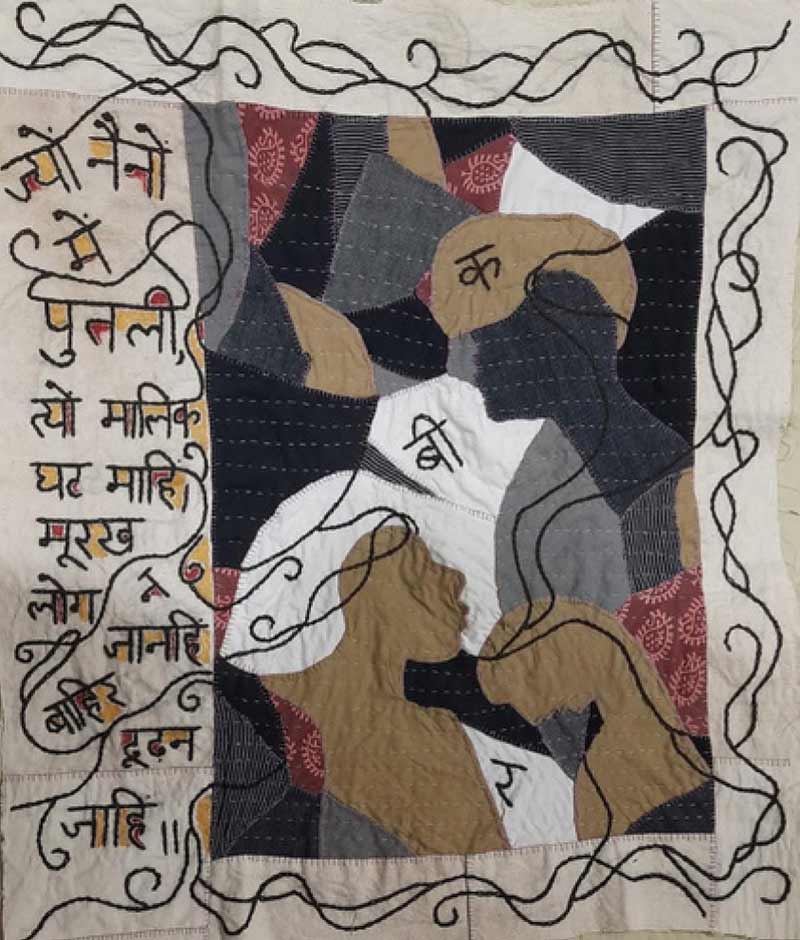 ज्यों नैनों
में
पुतली,
त्यों मालिक
घट माहिं।
मूरख
लोग न
जानहि
बाहिर
ढूढ़न
जाहिं॥
क
बी
र